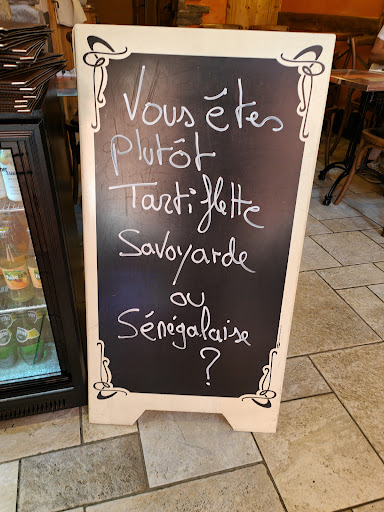 Vous êtes
plutôt
Tartiflette
Savoyarde
ou
Sénégalaise
?